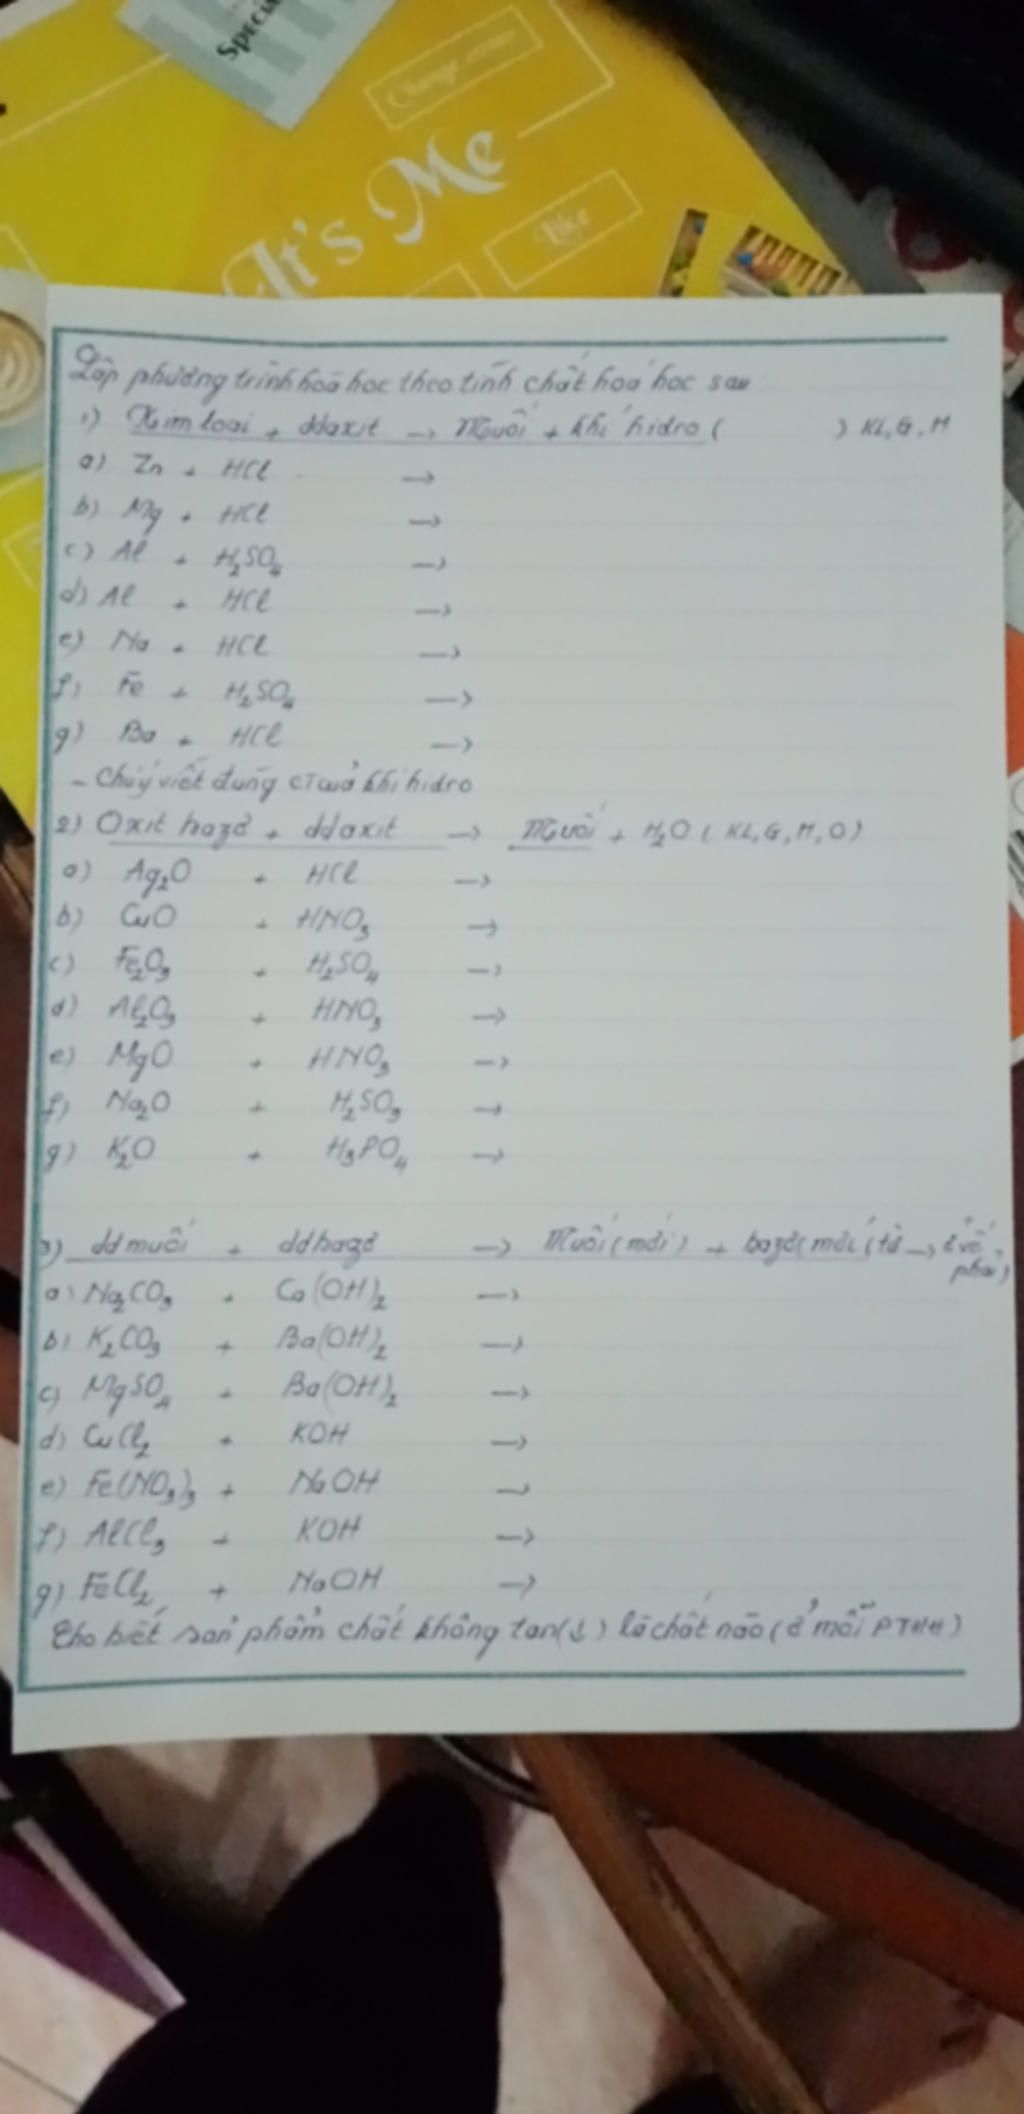 Special
Change
It's Me
like
Lập phương trình hoá học theo tính chất hoá học sau
1) Kim loại + ddaxit → Muối + khí hidro ( ) KL, G, H
a) Zn + HCl →
b) Mg + HCl →
c) Al + H₂SO₄ →
d) Al + HCl →
e) Na + HCl →
f) Fe + H₂SO₄ →
g) Ba + HCl →
- Chú ý viết đúng CT của khí hidro
2) Oxit bazơ + ddaxit → Muối + H₂O ( KL, G, H, O)
a) Ag₂O + HCl →
b) CuO + HNO₃ →
c) Fe₂O₃ + H₂SO₄ →
d) Al₂O₃ + HNO₃ →
e) MgO + HNO₃ →
f) Na₂O + H₂SO₃ →
g) K₂O + H₃PO₄ →
3) dd muối + dd bazơ → Muối (mới) + bazơ (mới (từ → ở vế phải)
a) Na₂CO₃ + Ca(OH)₂ →
b) K₂CO₃ + Ba(OH)₂ →
c) MgSO₄ + Ba(OH)₂ →
d) CuCl₂ + KOH →
e) Fe(NO₃)₃ + NaOH →
f) AlCl₃ + KOH →
g) FeCl₂ + NaOH →
Cho biết sản phẩm chất không tan (↓) là chất nào (ở mỗi PTHH)